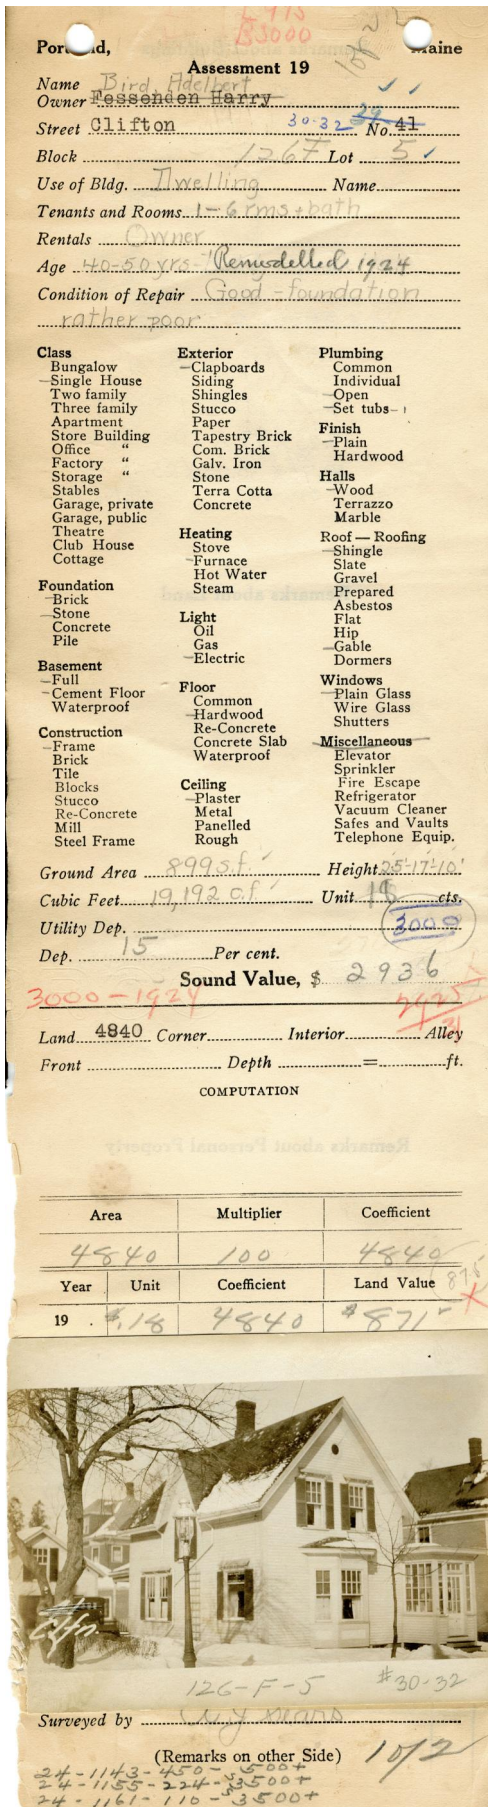 L 975
B 3000
Portland, Maine
Assessment 19
Name Bird Adelbert
Owner Fessenden Harry
Street Clifton 30-32 39 No. 41
Block 126 F Lot 5
Use of Bldg. Dwelling Name
Tenants and Rooms 1-6 rms + bath
Rentals Owner
Age 40-50 yrs - Remodelled 1924
Condition of Repair Good - foundation
rather poor
Class
Bungalow
Single House
Two family
Three family
Apartment
Store Building
Office "
Factory "
Storage "
Stables
Garage, private
Garage, public
Theatre
Club House
Cottage
Foundation
Brick
Stone
Concrete
Pile
Basement
Full
Cement Floor
Waterproof
Construction
Frame
Brick
Tile
Blocks
Stucco
Re-Concrete
Mill
Steel Frame
Exterior
Clapboards
Siding
Shingles
Stucco
Paper
Tapestry Brick
Com. Brick
Galv. Iron
Stone
Terra Cotta
Concrete
Heating
Stove
Furnace
Hot Water
Steam
Light
Oil
Gas
Electric
Floor
Common
Hardwood
Re-Concrete
Concrete Slab
Waterproof
Ceiling
Plaster
Metal
Panelled
Rough
Plumbing
Common
Individual
Open
Set tubs - 1
Finish
Plain
Hardwood
Halls
Wood
Terrazzo
Marble
Roof — Roofing
Shingle
Slate
Gravel
Prepared
Asbestos
Flat
Hip
Gable
Dormers
Windows
Plain Glass
Wire Glass
Shutters
Miscellaneous
Elevator
Sprinkler
Fire Escape
Refrigerator
Vacuum Cleaner
Safes and Vaults
Telephone Equip.
Ground Area 899 s.f. Height 25'-17'-10'
Cubic Feet 19,192 c.f. Unit cts.
Utility Dep. 3000
Dep. 15 Per cent.
Sound Value, $ 2936
3000 - 1924
Land 4840 Corner Interior Alley
Front Depth = ft.
COMPUTATION
Area Multiplier Coefficient
4840 100 4840
Year Unit Coefficient Land Value 875
19 $.18 4840 $871
126-F-5 #30-32
Surveyed by
(Remarks on other Side) 10/2
24-1143-450-$500+
24-1155-224-$3500+
24-1161-110-$3500+